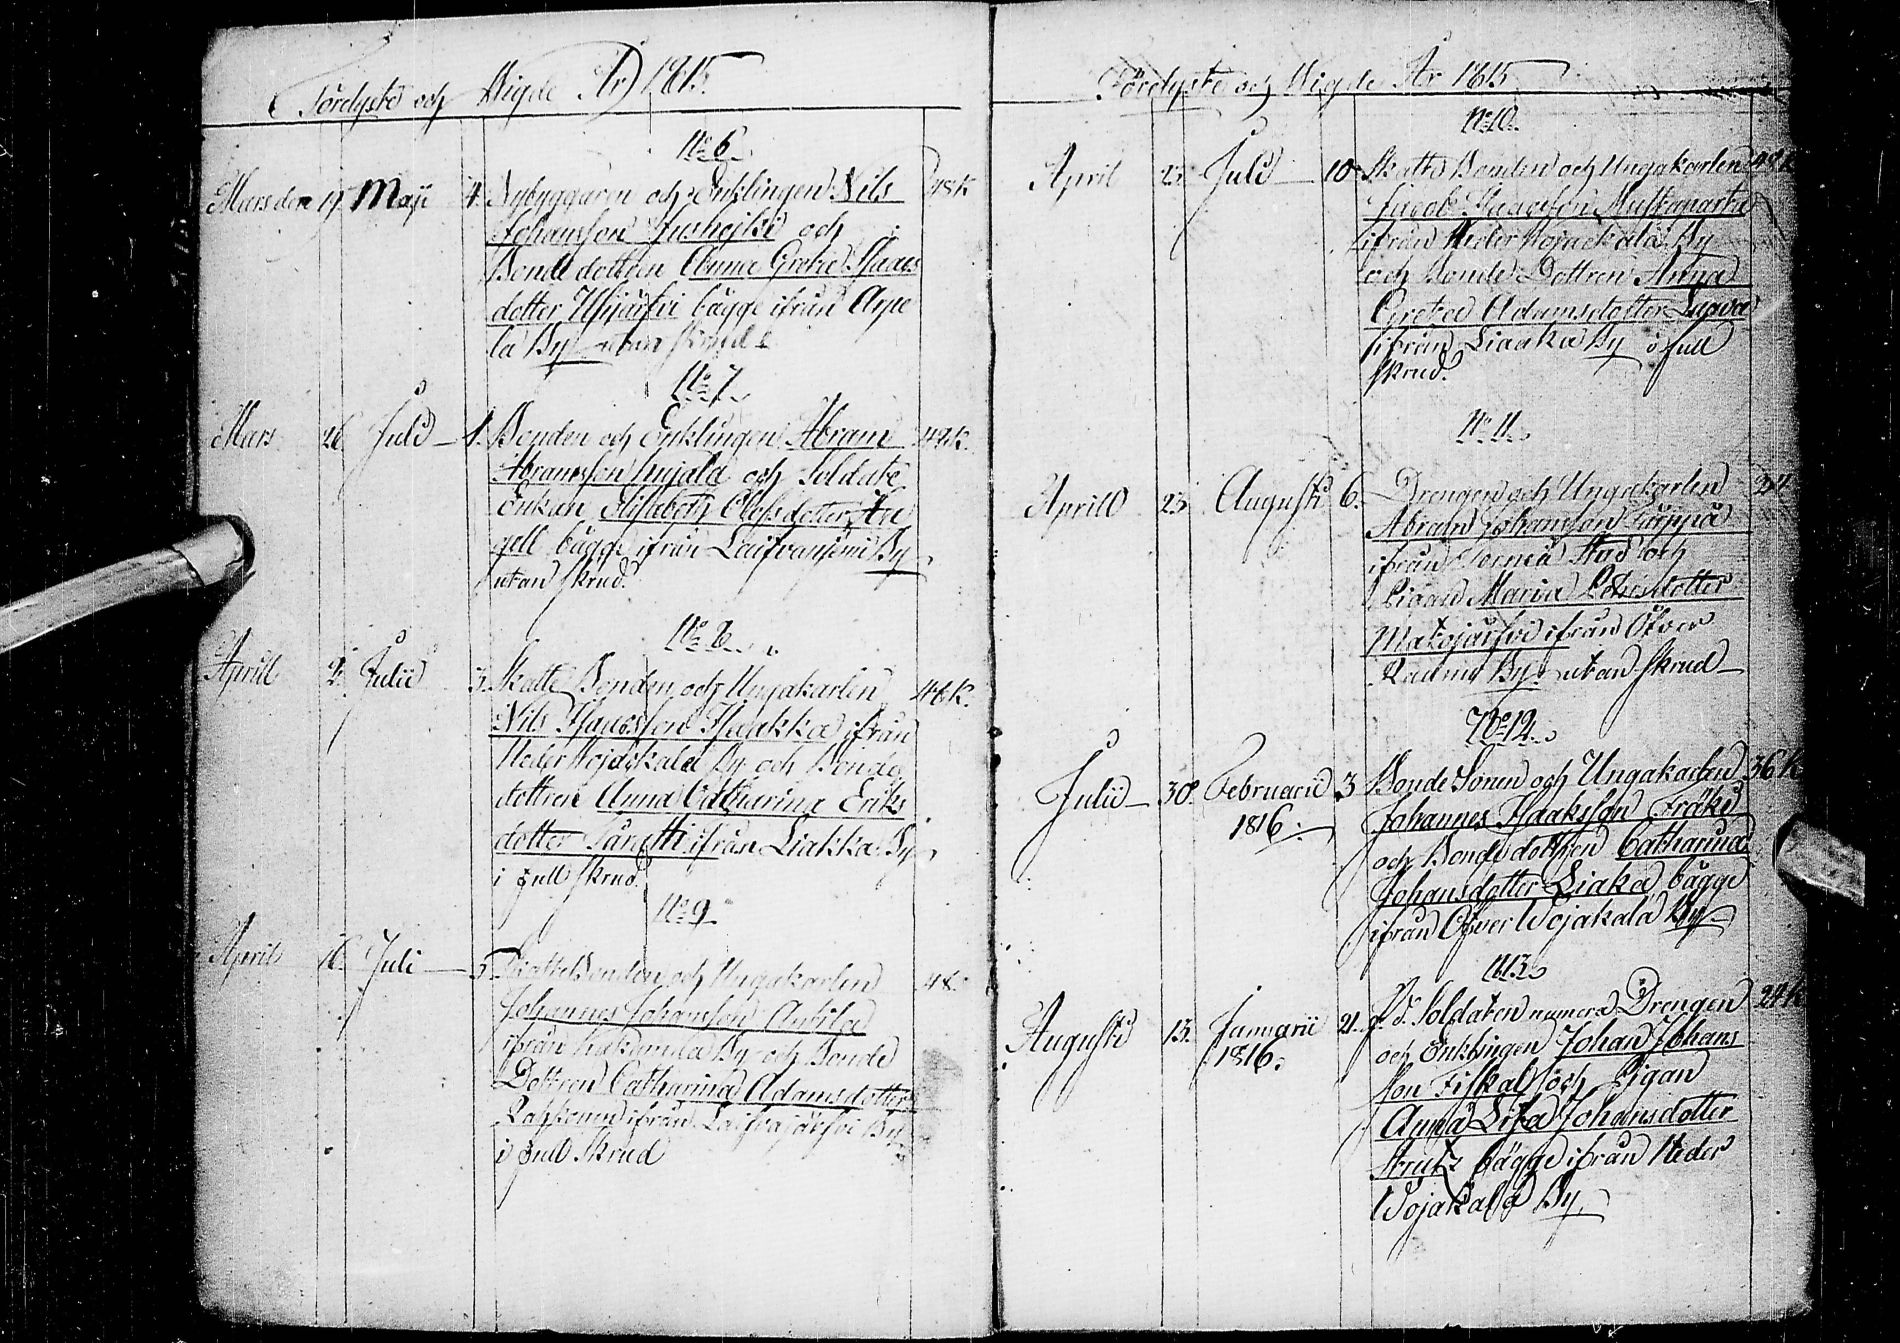 Förelyste och Wigde År 1815.
No 6
Mars den 19. Maji 4. Nybyggaren och Enklingen Nils 48 K
Johansson Jushojki och
Bonde dottren Anna Greta Isaacs
dotter bägge ifrån Arpe
la By utan skrud
No 7.
Mars 26 Julii 1. Bonden och Enklingen Abram 42 K.
Abramsson och Soldate
Enkan Elisabeth Olofsdotter
gell bägge ifrån By
utan skrud.
No 8.
April 2. Julii 3. Skatte Bonden och Ungakarlen 48 K.
Nils Isaacsson Haakka ifrån
Neder Wojackala By och Bonde
dottren Anna Catharina Eriks
dotter ifrån Liakka By
i full skrud.
No 9.
April 16. Juli 5. Skatte Bonden och Ungakarlen 48
Johannes Johansson Antila
ifrån By och Bonde
Dottren Catharina Adamsdotter
ifrån By
i full skrud
Förelyste och Wigde År 1815
No 10.
April 23 Juli 10 Skatte Bonden och Ungakarlen 48 K
Jacob Isaacsson
ifrån Neder Wojackala By
och Bonde Dottren Anna
Greta Adamsdotter
ifrån Liakka By i full
skrud.
No 11.
April 23 Augusti 6. Drengen och Ungakarlen 24
Abram Johansson Törppä
ifrån Torneå Stad och
Pigan Maria
ifrån Öfver
By utan skrud
No 12.
Julii 30. Februarii 3 Bonde Sonen och Ungakarlen 36 K
1816. Johannes Isaksson Fräki
och Bonde dottren Catharina
Johansdotter Liaka bägge
ifrån Öfver Wojakala By
No 13.
Augusti 13. Januarii 21. f. d. Soldaten numera Drengen 24 K
1816. och Enklingen Johan Johans
son Fiskal och Pigan
Anna Lisa Johansdotter
Strutz bägge ifrån Neder
Wojakala By